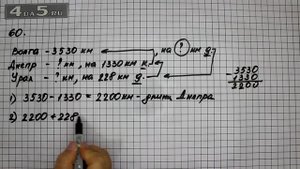 4au5.ru
60.
Волга - 3530 км, на ? км д.
Днепр - ? км, на 1330 км к.
Урал - ? км, на 228 км д.
3530
- 1330
2200
1) 3530 - 1330 = 2200 км - длина Днепра
2) 2200 + 228